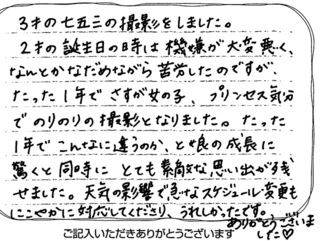 3才の七五三の撮影をしました。
2才の誕生日の時は機嫌が大変悪く、
なんとかなだめながら苦労したのですが、
たった1年でさすが女の子、プリンセス気分
でのりのりの撮影となりました。たった
1年でこんなに違うのか、と娘の成長に
驚くと同時にとても素敵な思い出が残
せました。天気の影響で急なスケジュール変更も
にこやかに対応してくださり、うれしかったです。
ありがとうございま
した♡
ご記入いただきありがとうございます